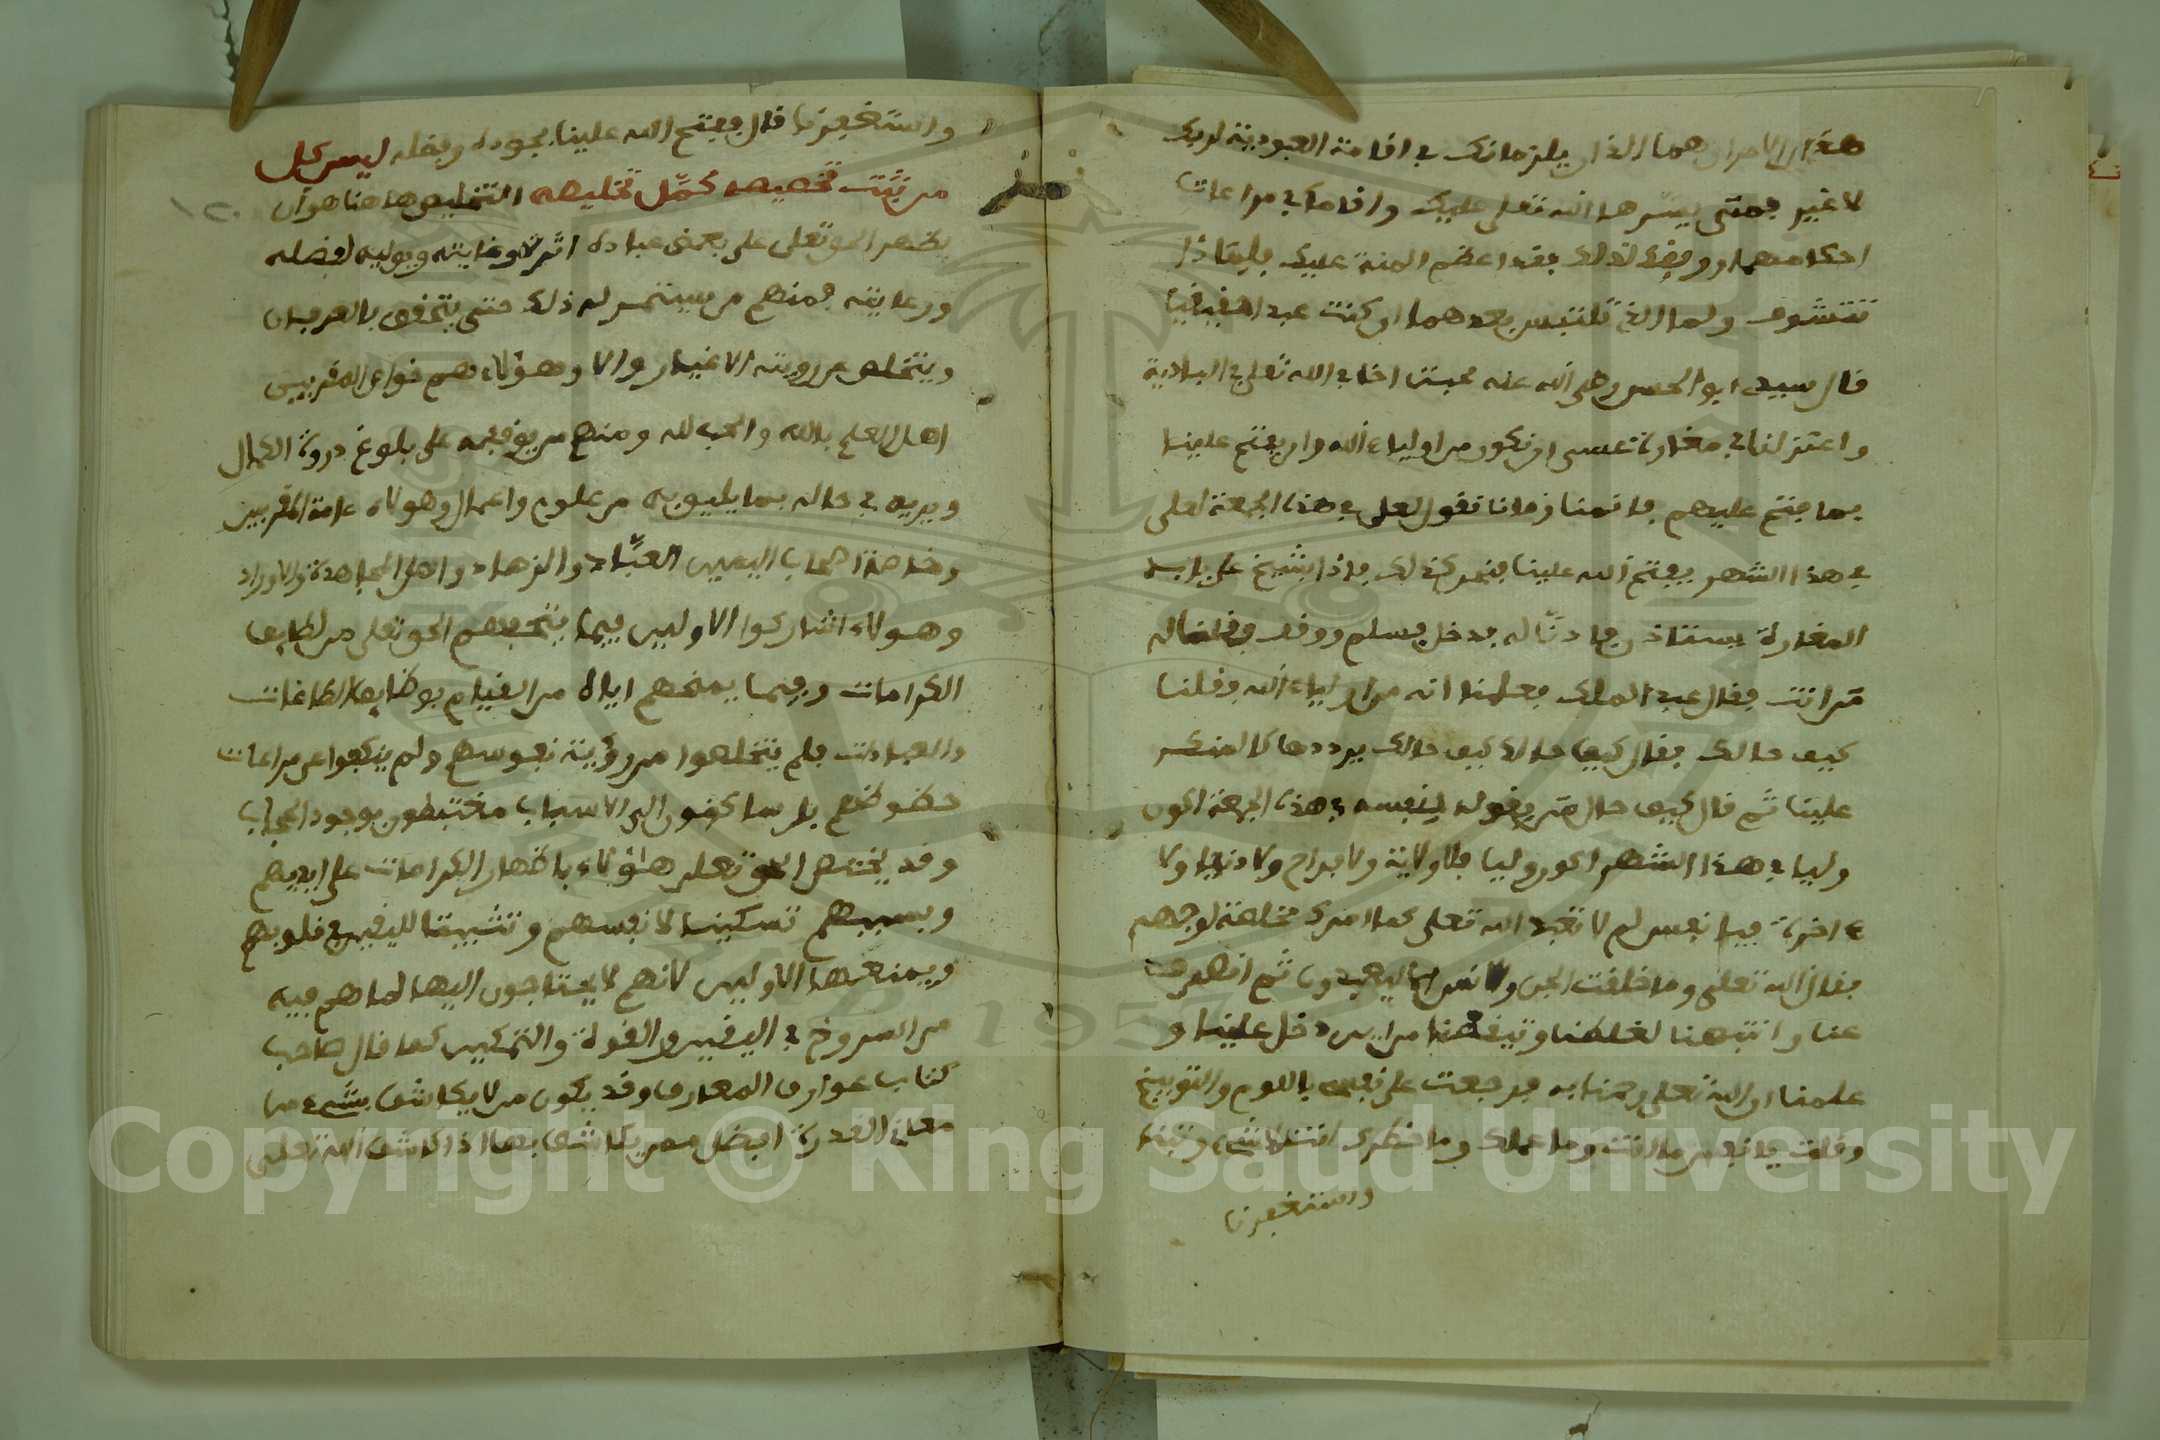 هذان الامران هما اللذان يلزمانك في اقامة العبودية لربك
لا غير فمتى يسرهما الله تعلى عليك واقامك في مراعات
احكامهما ووفقك لذلك فقد اعظم المنة عليك فلماذا
تتشوف ولما الذي تلتمس بعدهما ان كنت عبدا حقيقيا
قال سيدي ابو الحسن رضي الله عنه صحبت اخا في الله تعلى في البادية
واعتزلنا في مغارة عسى ان نكون من اولياء الله وان يفتح علينا
بما فتح عليهم فاقمنا زمانا نقول لعلى في هذه الجمعة لعلى
في هذا الشهر يفتح الله علينا فنحن كذلك فاذا بشيخ على باب
المغارة يستاذن فاذنا له فدخل فسلم ووقف فقلنا له
من انت فقال عبد الملك فعلمنا انه من اولياء الله فقلنا
كيف حالك فقال كيف حالك كيف حالك يرددها كالمنكر
علينا ثم قال كيف حال من يقول لنفسه في هذه الجمعة اكون
وليا في هذا الشهر اكون وليا فلا ولاية ولا فراح ولا دنيا ولا
ءاخرة فيا نفس لم لا تعبد الله تعلى كما امرك مخلصة لوجهه
فقال الله تعلى وما خلقت الجن والانس الا ليعبدون ثم انصرف
عنا وانتبهنا لغلطنا وتيقضنا من اين دخل علينا و
علمنا ان الله تعلى رحمنا به فرجعت على نفسي باللوم والتوبيخ
وقلت يا نفس ما انت وما عملك وما خطرك وتبنا
واستغفرنا
واستغفرنا قال ففتح الله علينا بجوده وفضله ليس كل
من ثبت تخصيصه كمل تخليصه التخليص هاهنا هو ان
١٢٠
يظهر الحق تعلى على بعض عباده اثرة وعنايته ويوليه لفضله
ورعايته فمنهم من يستمر له ذلك حتى يتحقق بالعرفان
ويتخلص من رؤية الاغيار والا وهؤلاء هم خواص المقربين
اهل العلم بالله والحب لله ومنهم من يوقفه على بلوغ ذروة الكمال
ويربيه في حاله بما يليق به من علوم واعمال وهولاء عامة المقربين
وخاصة اصحاب اليمين العباد والزهاد واهل المجاهدة والاوراد
وهولاء شاركوا الاولين فيما يتحفهم الحق تعلى من لطايف
الكرامات وفيما يمنحهم اياه من القيام بوظايف الطاعات
والعبادات فلم يتخلصوا من رؤية نفوسهم ولم ينفكوا عن مراعات
حظوظهم بل ساكنون الى الاسباب مختبطون بوجود الحجاب
وقد يختص الحق تعلى هؤلاء باظهار الكرامات على ايديهم
وبسببهم تسكينا لانفسهم وتثبيتا لليقين في قلوبهم
ويمنعها الاولين لانهم لا يحتاجون اليها لما هم فيه
من الرسوخ في اليقين والقوة والتمكين كما قال صاحب
كتاب عوارف المعارف وقد يكون من لا يكاشف بشيء من
معاني القدرة افضل ممن يكاشف بها اذا كاشفه الله تعلى
Copyright © King Saud University
1957